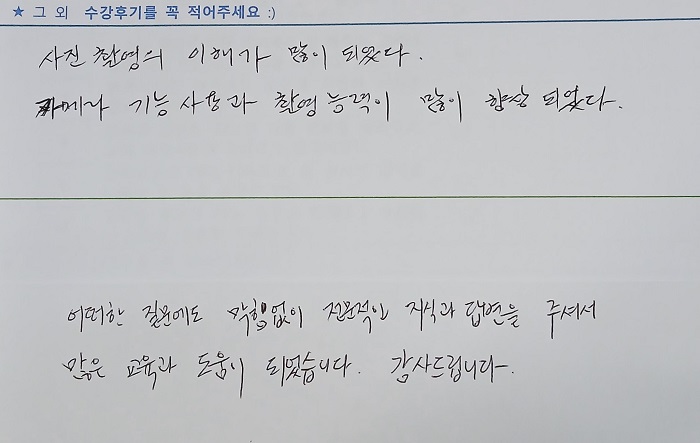 ★ 그 외 수강후기를 꼭 적어주세요 :)
사진 촬영의 이해가 많이 되었다.
카메라 기능 사용과 촬영 능력이 많이 향상 되었다.
어떠한 질문에도 막힘없이 전문적인 지식과 답변을 주셔서
많은 교육과 도움이 되었습니다. 감사드립니다.